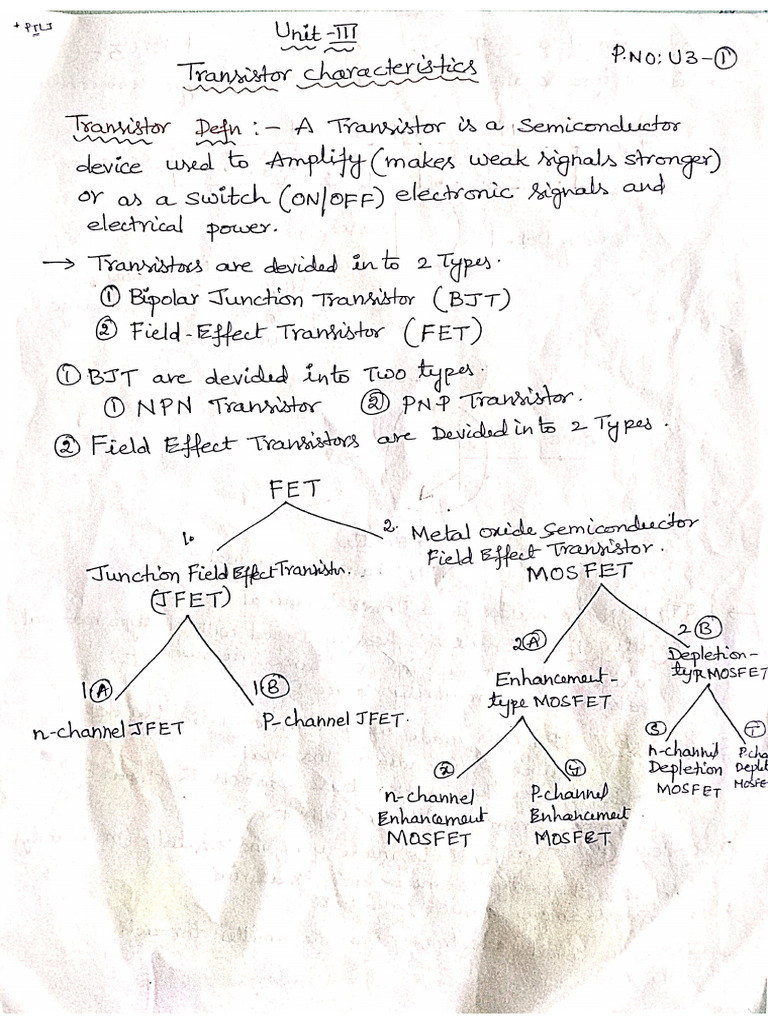 Unit-III
P.NO: U3-①
Transistor characteristics
Transistor Defn :- A Transistor is a semiconductor
device used to Amplify (makes weak signals stronger)
or as a switch (ON/OFF) electronic signals and
electrical power.
→ Transistors are devided in to 2 Types.
① Bipolar Junction Transistor (BJT)
② Field-Effect Transistor (FET)
① BJT are devided into Two types.
① NPN Transistor ② PNP Transistor.
② Field Effect Transistors are Devided in to 2 Types.
FET
1.
2. Metal oxide Semiconductor
Field Effect Transistor.
MOSFET
Junction Field Effect Transistor.
(JFET)
2Ⓐ
2Ⓑ
Depletion-
type MOSFET
Enhancement-
type MOSFET
1Ⓐ
1Ⓑ
n-channel JFET
P-channel JFET.
n-channel
Depletion
MOSFET
P-cha
Deplet
MOSFE
n-channel
Enhancement
MOSFET
P-channel
Enhancement
MOSFET